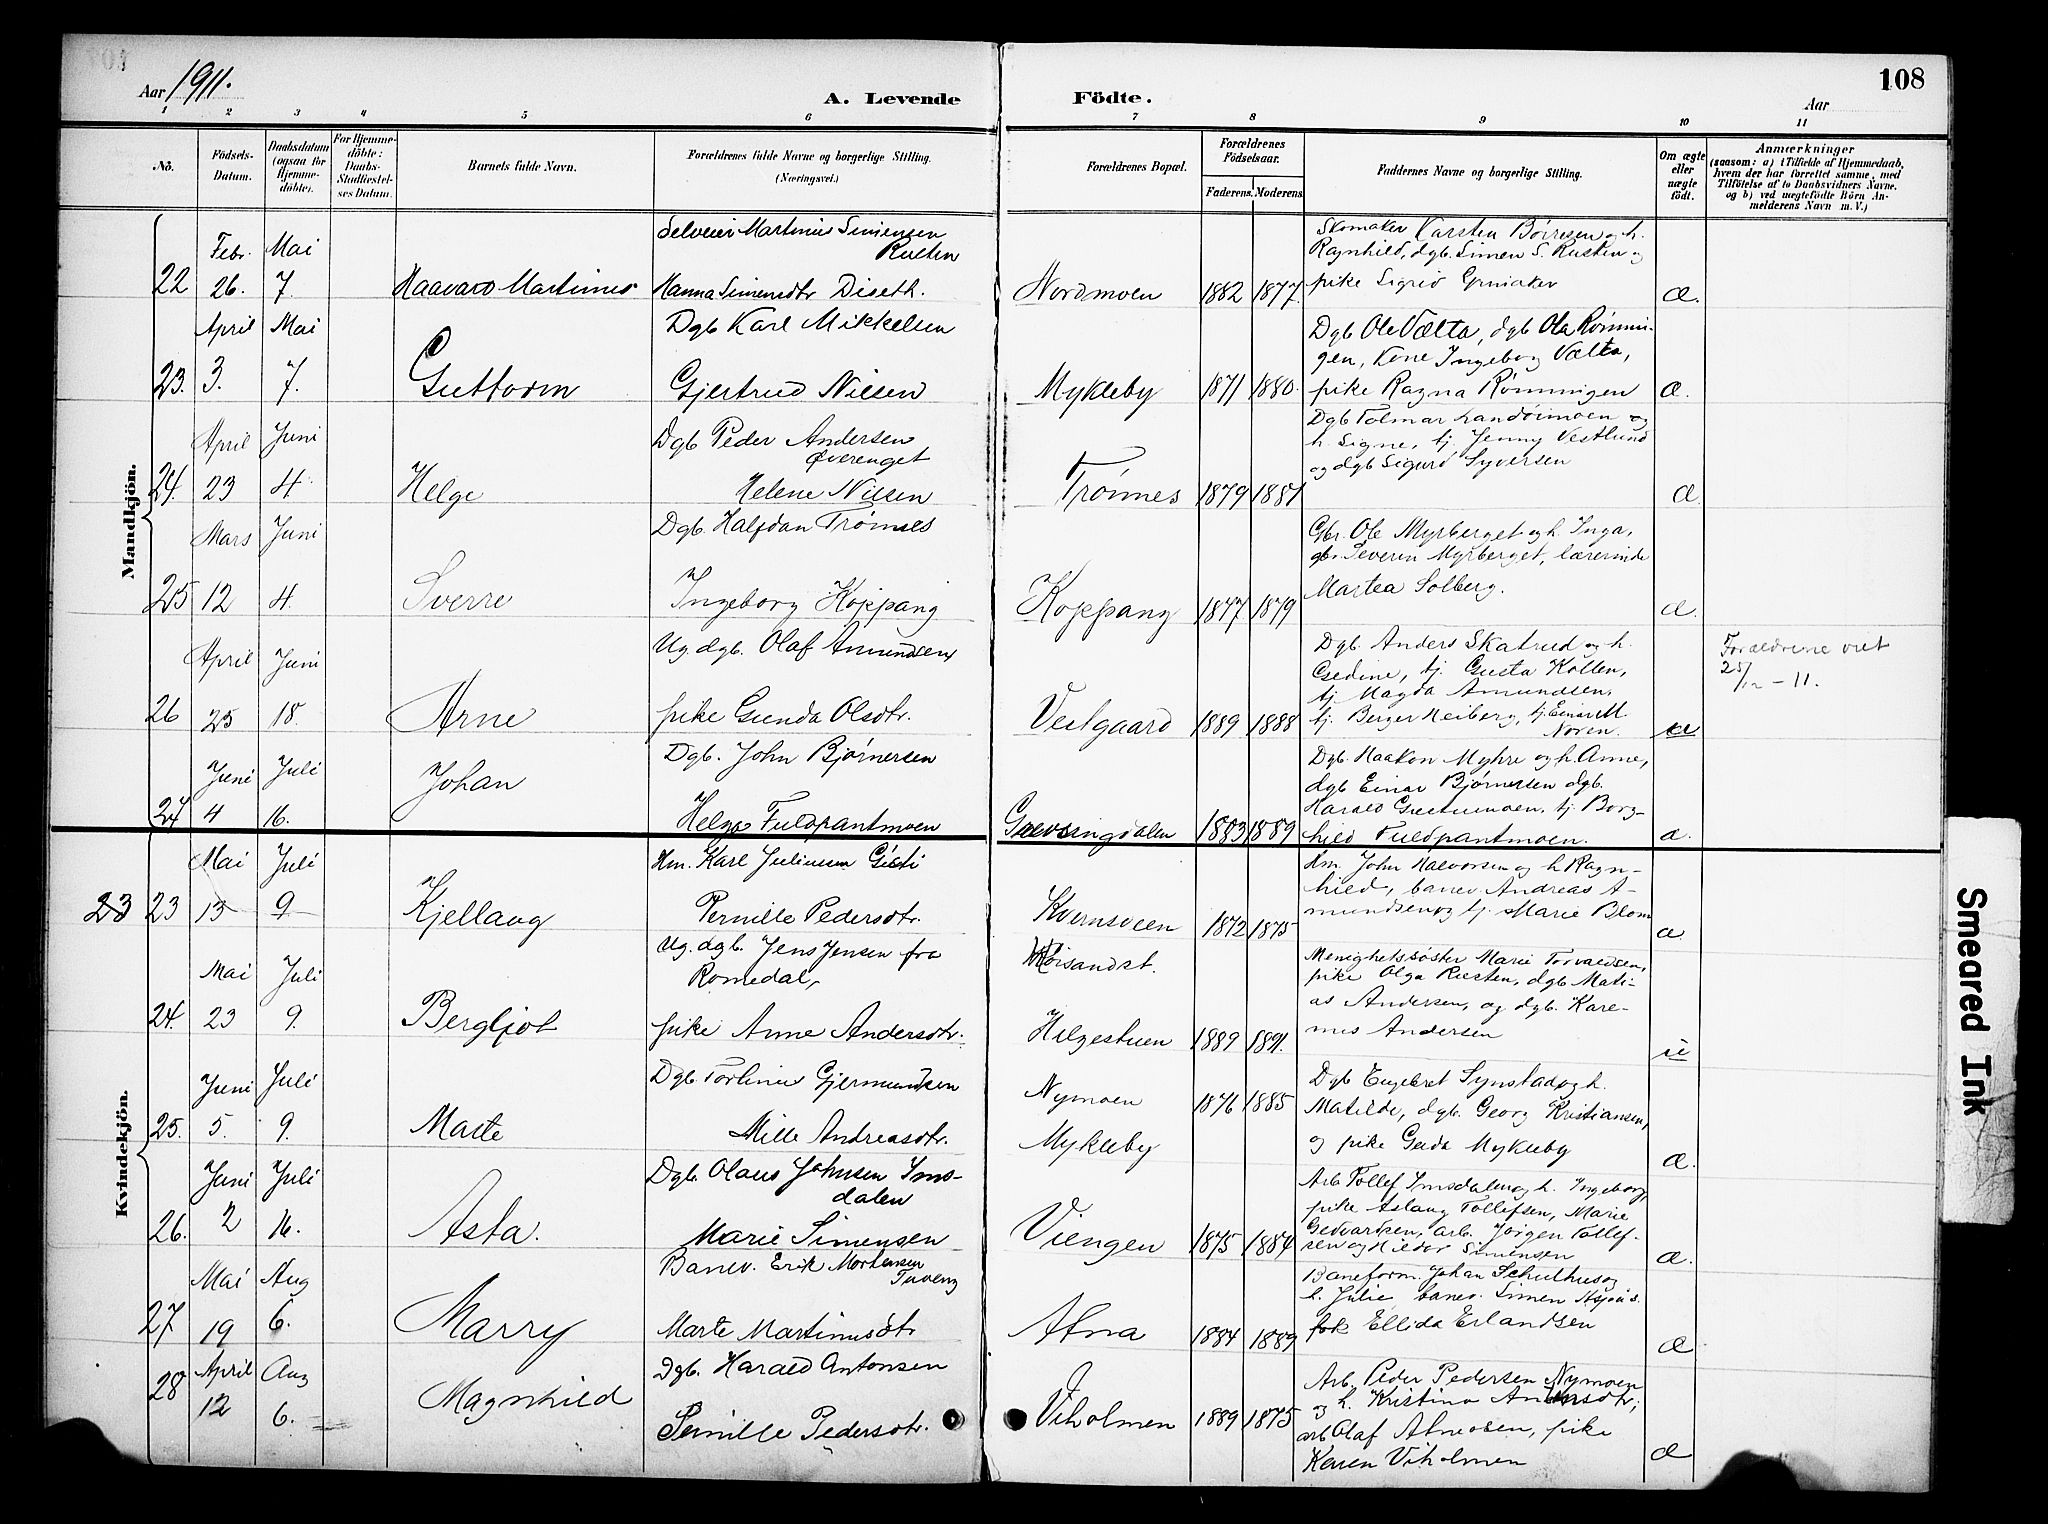 Aar 1911.
A. Levende Födte.
Aar
108
1 2 3 4 5 6 7 8 9 10 11
No.
Födsels-Datum.
Daabsdatum (ogsaa for Hjemme-döbte).
For Hjemme-döbte: Daabs-Stadfæstelses Datum.
Barnets fulde Navn.
Forældrenes fulde Navne og borgerlige Stilling. (Næringsvei.)
Forældrenes Bopæl.
Forældrenes Födselsaar.
Faderens. Moderens.
Faddernes Navne og borgerlige Stilling.
Om ægte eller uægte födt.
Anmærkninger (saasom: a) i Tilfælde af Hjemmedaab, hvem der har forrettet samme, med Tilföielse af to Daabsvidners Navne. og b) ved uægtefödte Börn Anmelderens Navn m. V.)
Mandkjön.
22 Febr. 26. Mai 7. Haavard Martinus
Selveier Martinus Simensen Rusten
Hanna Simensdtr Diseth.
Nordmoen 1882 1877.
Skomaker Karsten Børresen og h.
Ragnhild, dgb. Simen S. Rusten og
pike Sigrid
Æ.
23. April 3. Mai 7. Guttorm
Dgb Karl Mikkelsen
Gjertrud Nilsen
Mykleby 1871 1880.
Dgb Ole Vælta, dgb Ola Rømmin-
gen, Kone Ingeborg Vælta,
pike Ragna Rømmingen
Æ.
24. April 23 Juni 4. Helge
Dgb Peder Andersen
Øverenget
Helene Nilsen
Trønnes 1879 1881
Dgb Tolmar Landsimoen og
h. Signe, tj. Jenny Vestlund
og dgb Sigurd Syversen
Æ.
25 Mars 12 Juni 4. Sverre
Dgb. Halfdan Trønnes
Ingeborg Koppang
Koppang 1877 1879
Gbr. Ole Myrberget og h. Inga,
gb. Severin Myrberget, lærerinde
Martea Solberg.
Æ.
26 April 25 Juni 18. Arne
Ug. dgb. Olaf Amundsen
pike Gunda Olsdtr.
Vestgaard 1889 1888
Dgb. Anders Skatrud og h.
Gedine, tj. Gusta Kollen,
tj. Magda Amundsen,
tj. Berger Heiberg, tj. Einar M.
Noren.
Forældrene viet
25/12 – 11.
27 Juni 4 Juli 16. Johan
Dgb. John Bjørnersen
Helga Fuldpantmoen
Grøvsingdalen 1883 1889
Dgb. Haakon Myhre og h. Anne,
dgb Einar Bjørnersen dgb.
Harald Grøstumoen, tj. Borg-
hild Fuldpantmoen.
Æ.
Kvindekjön.
23 23 Mai 15 Juli 9 Kjellaug
Hm. Karl Juliussen
Pernille Pedersdtr.
Kvernsveen 1872 1875
Hm. John Halvorsen og h Ragn-
hild, banev. Andreas A-
mundsen og tj. Marie Blom
Æ.
24. Mai 23 Juli 9. Bergljot
Ug. dgb. Jens Jensen fra
Romedal,
pike Anne Andersdtr.
Hilgestuen 1889 1891.
Menighetssøster Marie Torvaldsen,
pike Olga Rusten, dgb Mati-
as Andersen, og dgb. Kare-
nus Andersen
u
25. Juni 5. Juli 9. Marte
Dgb Torlinus Gjermundsen
Mille Andreasdtr.
Nymoen
Mykleby
1876 1885
Dgb Engebret Synstad og h.
Matilde, dgb. Georg Kristiansen,
og pike Gerda Mykleby
Æ.
26. Juni 2 Juli 16. Asta.
Dgb. Olaus Johnsen Ims-
dalen
Marie Simensen
Viengen 1875 1884
Arb. Tollef Imsdalen og h. Ingeborg,
pike Aslaug Tollefsen, Marie
Gedvardsen, arb. Jørgen Tollef-
sen og Hildor Simensen
Æ.
27 Mai 19 Aug 6. Marry
Banev. Erik Mortensen
Marte Martinusdtr
Atna 1884 1889
Baneform. Johan Schulhus og
h. Julie, banev. Simen
frk Ellida Erlandsen
Æ
28 April 12 Aug 6. Magnhild
Dgb. Harald Antonsen
Pernille Pedersdtr.
Viholmen 1889 1875
Arb. Peder Pedersen Nymoen
og h. Kristina Andersdtr,
arb Olaf Atneosen, pike
Karen Viholmen
Æ
Smeared Ink